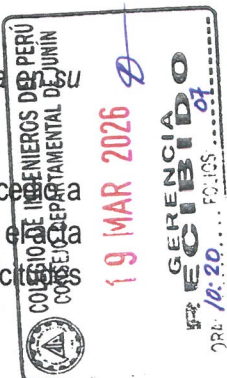 COLEGIO DE INGENIEROS DEL PERÚ
CONSEJO DEPARTAMENTAL DE JUNÍN
19 MAR 2026
GERENCIA
RECIBIDO
HORA: 10:20 FOLIOS: 07
su
a